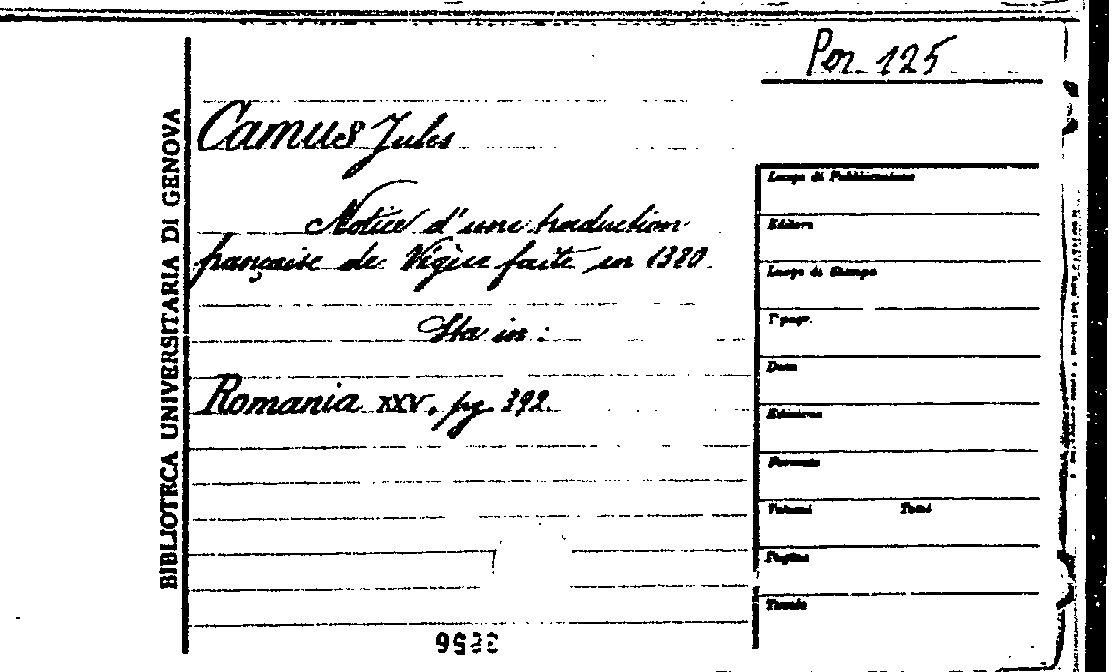 Per. 125
BIBLIOTECA UNIVERSITARIA DI GENOVA
Camus Jules
Notice d'une traduction
française de Végèce faite en 1380.
Sta in:
Romania XXV, pg. 392.
Luogo di Pubblicazione
Editore
Luogo di Stampa
Tipogr.
Data
Edizione
Formato
Volumi Tomi
Pagine
Tavole